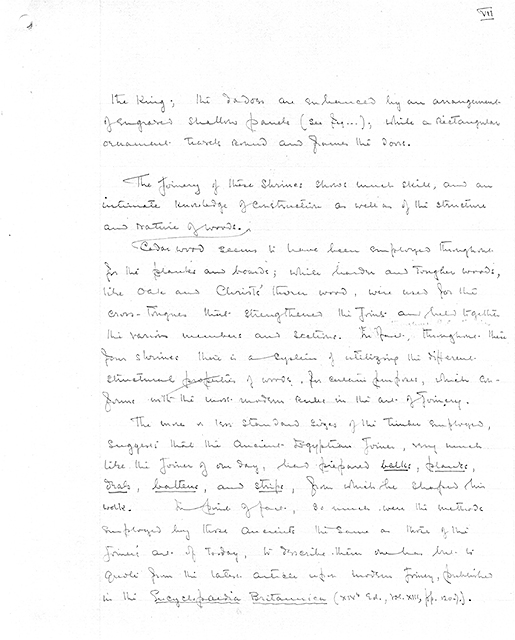 VII
the King; the dadoes are enhanced by an arrangement
of engraved shallow panels (see Fig...); while a rectangular
ornament travels round and frames the doors.
The Joinery of these Shrines shows much skill, and an
intimate knowledge of Construction as well as of the structure
and nature of woods.
Cedar wood seems to have been employed throughout
for the planks and boards; while harder and tougher woods,
like Oak and Christ's thorn wood, were used for the
cross-tongues that strengthened the joints and held together
the various members and sections. In fact, throughout these
four shrines there is a system of utilizing the different
structural properties of woods, for certain purposes, which con-
forms with the most modern rules in the art of Joinery.
The more or less standard sizes of the timber employed,
suggests that the ancient Egyptian Joiner, very much
like the Joiner of our day, had prepared balks, planks,
deals, battens, and strips, from which he shaped his
work. In point of fact, so much were the methods
employed by those Ancients the same as those of the
Joiner's art of today, to describe them one has but to
quote from the latest article upon modern Joinery, published
in the Encyclopaedia Britannica (XIVth Ed., Vol. XIII, pp.